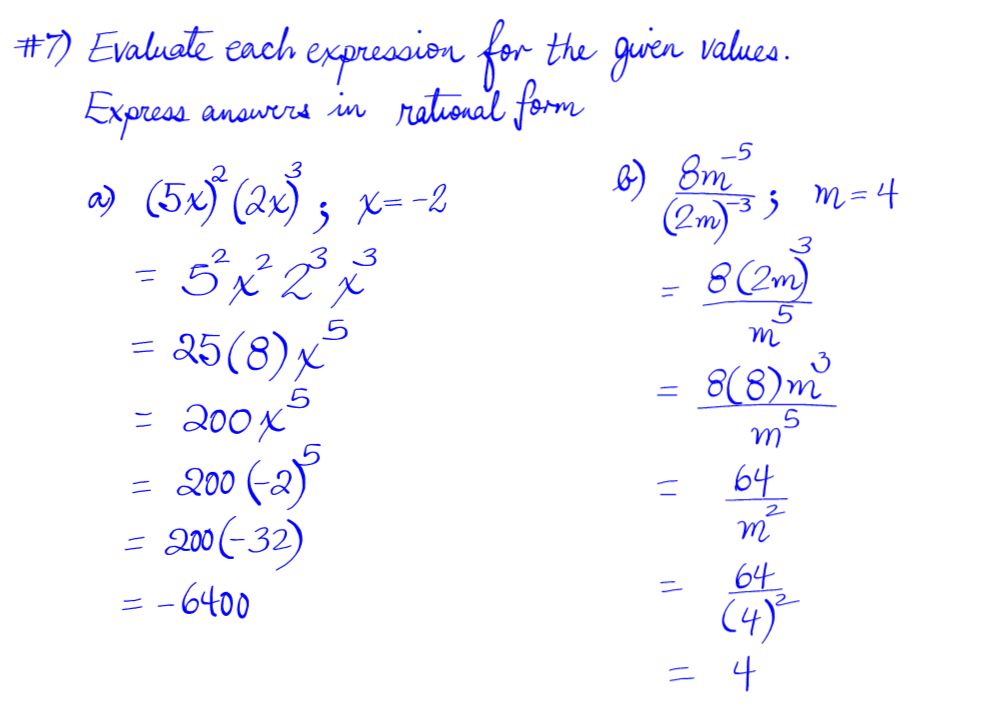 #7) Evaluate each expression for the given values.
Express answers in rational form
a) (5x)²(2x)³ ; x = -2
= 5² x² 2³ x³
= 25(8)x⁵
= 200x⁵
= 200(-2)⁵
= 200(-32)
= -6400
b) 8m⁻⁵/(2m)⁻³ ; m = 4
= 8(2m)³/m⁵
= 8(8)m³/m⁵
= 64/m²
= 64/(4)²
= 4